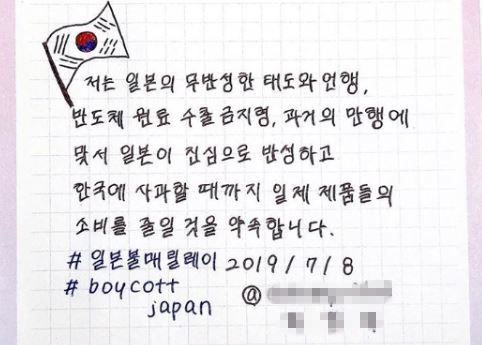 저는 일본의 무반성한 태도와 언행,
반도체 원료 수출 금지령, 과거의 만행에
맞서 일본이 진심으로 반성하고
한국에 사과할 때까지 일제 제품들의
소비를 줄일 것을 약속합니다.
# 일본불매릴레이 2019 / 7 / 8
# boycott
japan @